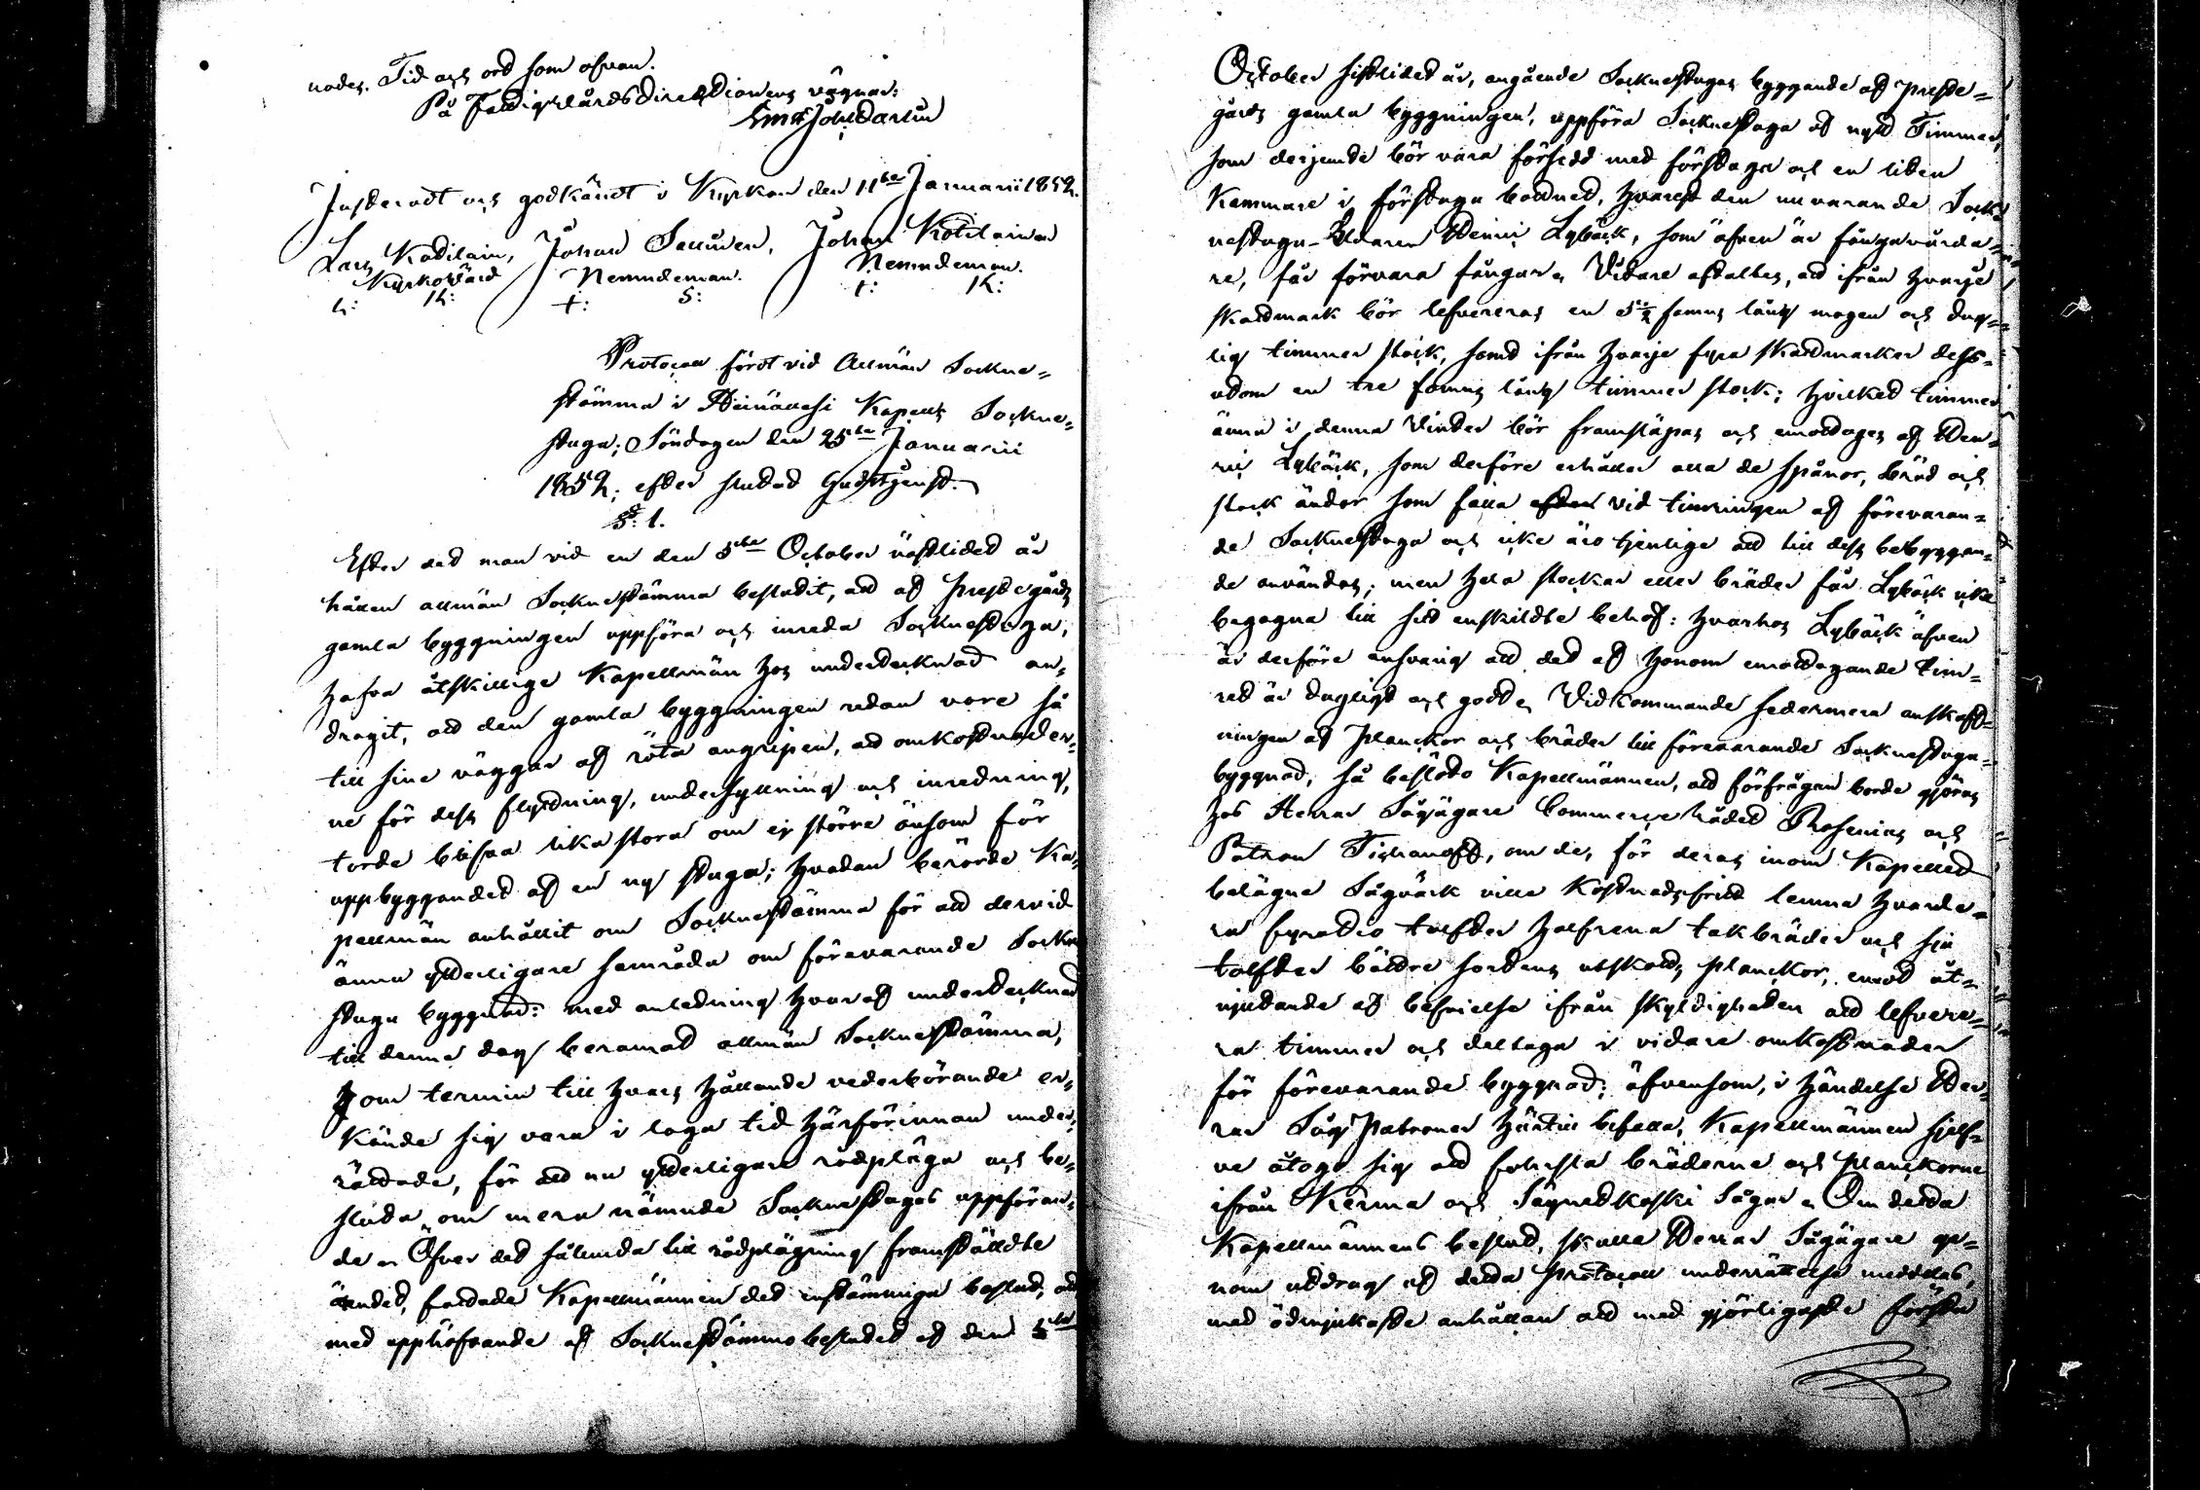 nades. Tid och ort som ofvan.
På Fattigvårdsdirektionens vägnar:
Joh. Carlin
Justeradt och godkändt i Kyrkan den 11te Januarii 1852.
Lars Kotilain, Johan Sallinen, Johan Kotilainen
Kyrkovärd Nemndeman. Nemndeman.
L: K: +: S: +: K:
Protocoll fördt vid Allmän Sockne-
stämma i Heinävesi Kapells Sockne-
stuga, Söndagen den 25te Januarii
1852, efter slutad Gudstjenst.
§. 1.
Efter det man vid en den 5te October sistlidet år
hållen allmän Socknestämma beslutit, att af Prestegårds
gamla byggningen uppföra och inreda Socknestuga,
hafva åtskillige Kapellmän hos undertecknad an-
dragit, att den gamla byggningen redan vore så
till sine väggar af röta angripen, att omkostnader-
ne för dess flyttning, undersyllning och inredning,
torde blifva lika stora om ej större än som för
uppbyggandet af en ny stuga; hvadan berörde Ka-
pellmän anhållit om Socknestämma för att dervid
ännu ytterligare samråda om förevarande Sockne
stugu byggnad: med anledning hvaraf undertecknad
till denna dag beramat allmän Socknestämma,
om termin till hvars hållande vederbörande er-
kände sig vara i laga tid härförinnan under-
rättade, för att nu ytterligare rådpläga och be-
sluta om mera nämnde Socknestugas uppföran-
de. Öfver det sålunda till rådplägning framställdte
ärendet, fattade Kapellmännen det enstämmiga beslut, att
med upphöfvande af Socknestämmobeslutet af den 5te
October sistlidet år, angående Socknestugas byggande af preste-
gårds gamla byggningen, uppföra Socknestuga af nytt Timmer,
som derjemte bör vara försedd med förstuga och en liten
Kammare i förstugu bottnet, hvarest den nuvarande Sock-
nestugu-Eldaren Henric Lybäck, som äfven är fångvårda-
re, får förvara fångar. Vidare aftaltes, att ifrån hvarje
skattmark bör lefvereras en 5½ famns lång mogen och dug-
lig timmer stock, samt ifrån hvarje fyra skattmarker dess-
utom en tre famns lång timmer stock; hvilket timmer
ännu i denna vinter bör framsläpas och emottages af Hen-
ric Lybäck, som derföre erhåller alla de spånor, bräd och
stock ändor som falla vid timringen af förevaran-
de Socknestuga och icke äro tjenlige att till dess bebyggan-
de användas; men hela stockar eller bräder får Lybäck icke
begagna till sitt enskildte behof: hvarhos Lybäck äfven
är derföre ansvarig att det af honom emottagande tim-
ret är dugligt och godt. Vidkommande sedermera anskaff-
ningen af Planckor och bräder till förevarande Socknestugu-
byggnad, så beslöto Kapellmännen, att förfrågan borde göras
hos Herrar Sågägare Commerce Rådet Rosenius och
Patron Tichanoff, om de, för deras inom Kapellet
belägne Sågvärk ville kostnadsfritt lemna hvarde-
ra fyratio tolfter halfrena takbräder och sju
tolfter bättre sortens utskotts planckor, emot åt-
njutande af befrielse ifrån skyldigheten att lefvere-
ra timmer och deltaga i vidare omkostnader
för förevarande byggnad; äfvensom, i händelse Her-
rar Såg Patroner härtill bifalla, Kapellmännen sjelf-
ve åtogo sig att forsla bräderne och planckorne
ifrån Kerma och Säynetkoski Sågar. Om detta
Kapellmännens beslut, skulle Herrar Sågägare ge-
nom utdrag af detta Protocoll underrättelse meddelas,
med ödmjukaste anhållan att med görligaste första